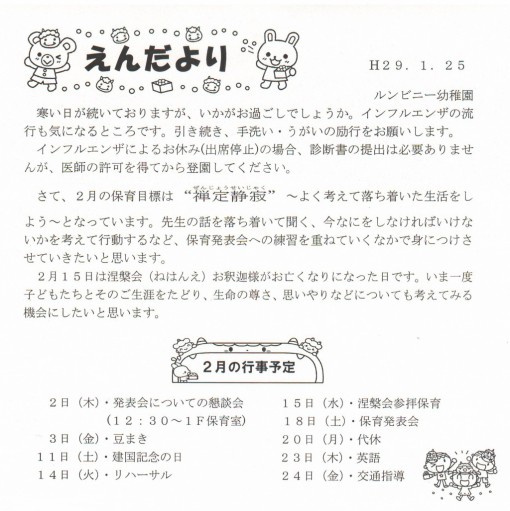 えんだより
H29.1.25
ルンビニー幼稚園
寒い日が続いておりますが、いかがお過ごしでしょうか。インフルエンザの流
行も気になるところです。引き続き、手洗い・うがいの励行をお願いします。
インフルエンザによるお休み(出席停止)の場合、診断書の提出は必要ありませ
んが、医師の許可を得てから登園してください。
ぜんじょうせいじゃく
さて、2月の保育目標は “禅定静寂” ～よく考えて落ち着いた生活をし
よう～となっています。先生の話を落ち着いて聞く、今なにをしなければいけな
いかを考えて行動するなど、保育発表会への練習を重ねていくなかで身につけさ
せていきたいと思います。
2月15日は涅槃会（ねはんえ）お釈迦様がお亡くなりになった日です。いま一度
子どもたちとそのご生涯をたどり、生命の尊さ、思いやりなどについても考えてみる
機会にしたいと思います。
2月の行事予定
2日（木）・発表会についての懇談会
(12：30～1F保育室)
3日（金）・豆まき
11日（土）・建国記念の日
14日（火）・リハーサル
15日（水）・涅槃会参拝保育
18日（土）・保育発表会
20日（月）・代休
23日（木）・英語
24日（金）・交通指導